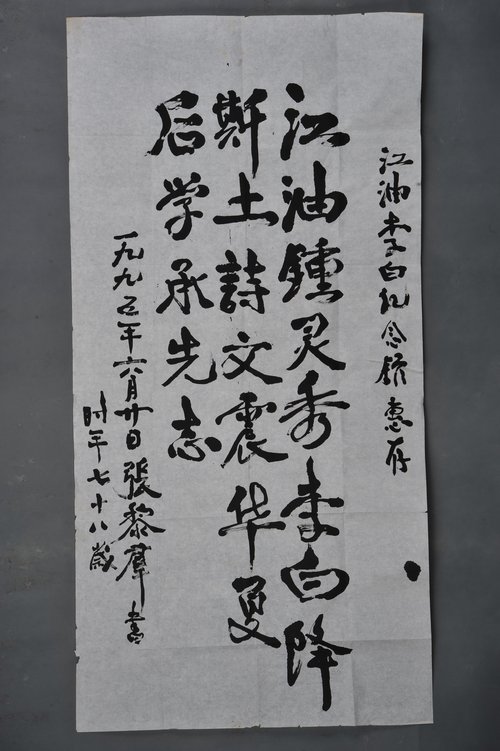 江油李白纪念馆惠存
江油鍾灵秀李白降
斯土詩文震华夏
后学承先志
一九九五年六月廿日張黎羣书
时年七十八歲